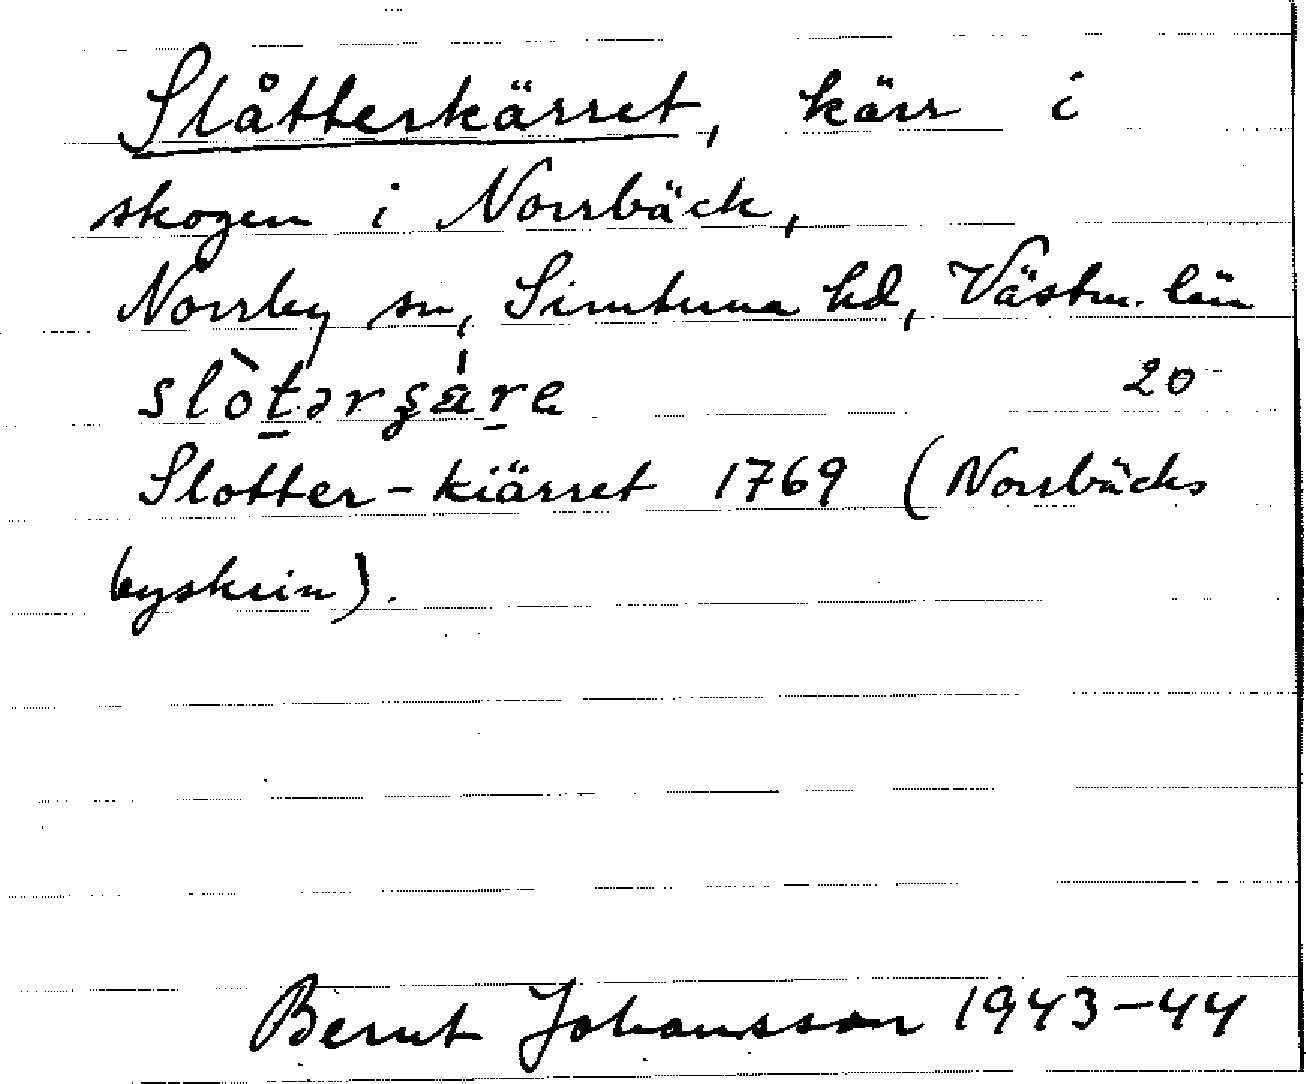 Slåtterkärret, kärr i
skogen i Norrbäck,
Norrby sn, Simtuna hd, Västm. län
20
Slotter-kiärret 1769 (Norrbäcks
byskrin).
Bernt Johansson 1943-44